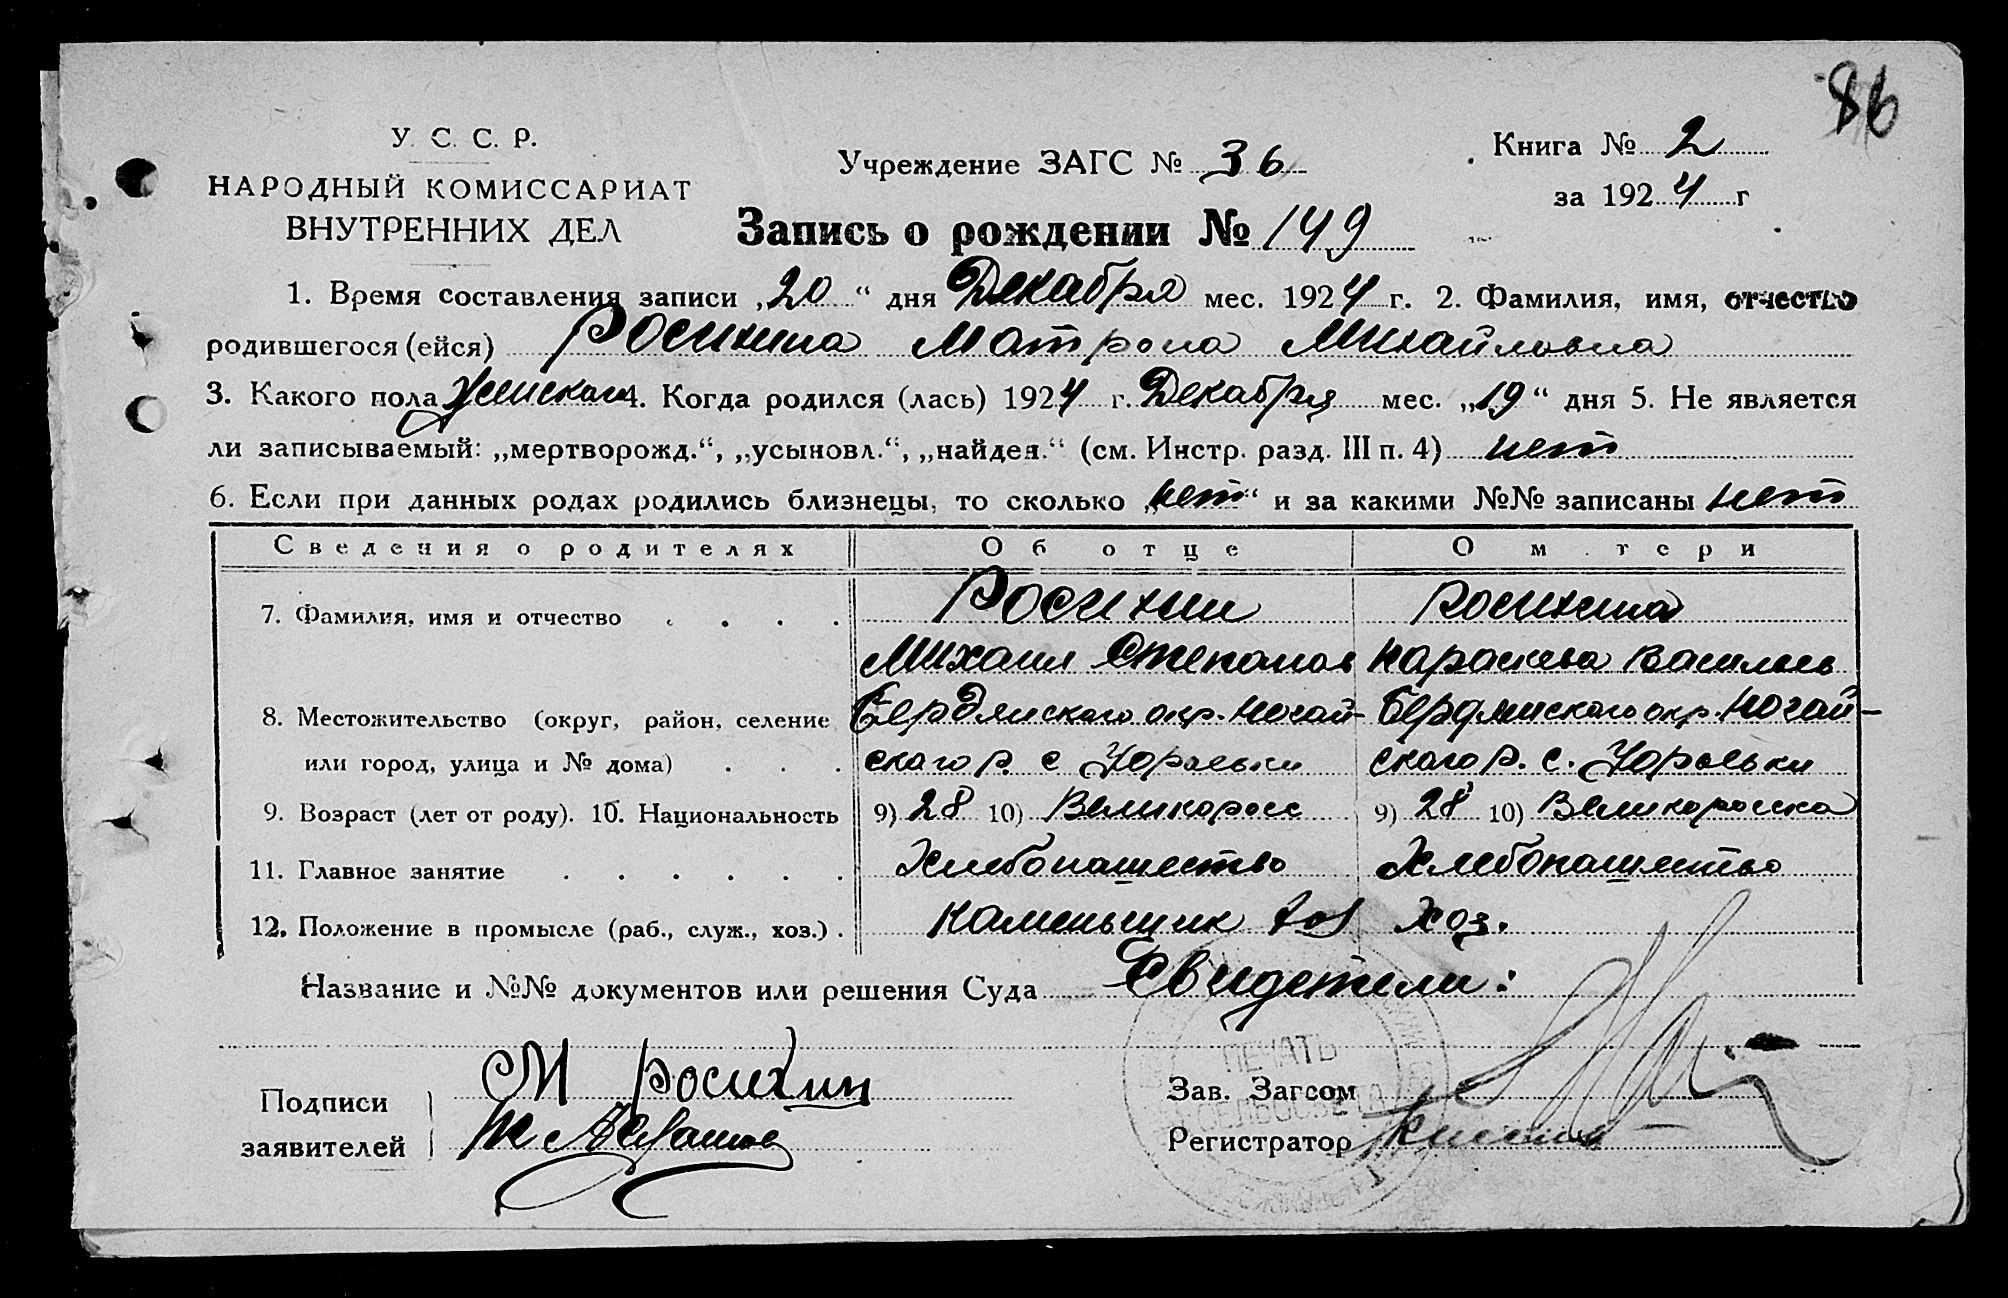 86
У. С. С. Р.
НАРОДНЫЙ КОМИССАРИАТ
ВНУТРЕННИХ ДЕЛ
Учреждение ЗАГС № 36
Книга № 2
за 1924 г
Запись о рождении № 149
1. Время составления записи „20“ дня Декабря мес. 1924 г. 2. Фамилия, имя, отчество
родившегося (ейся) Росихина Матрона Михайловна
3. Какого пола Женского 4. Когда родился (лась) 1924 г. Декабря мес. „19“ дня 5. Не является
ли записываемый: „мертворожд.“, „усыновл.“, „найден.“ (см. Инстр. разд. III п. 4) нет
6. Если при данных родах родились близнецы, то сколько „нет“ и за какими №№ записаны нет
Сведения о родителях Об отце О м тери
7. Фамилия, имя и отчество Росихин Росихина
Михаил Степанов Параскева Васильев
8. Местожительство (округ, район, селение Бердянского окр. Ногай- Бердянского окр. Ногай-
или город, улица и № дома) ского р. с Юрьевки ского р. с. Юрьевки
9. Возраст (лет от роду). 10. Национальность 9) 28 10) Великоросс 9) 28 10) Великоросска
11. Главное занятие Хлебопашество Хлебопашество
12. Положение в промысле (раб., служ., хоз.) каменьщик хоз.
Название и №№ документов или решения Суда Свидетели:
Подписи М Росихин
заявителей
Зав. Загсом
Регистратор
ПЕЧАТЬ
СЕЛЬСОВЕТА